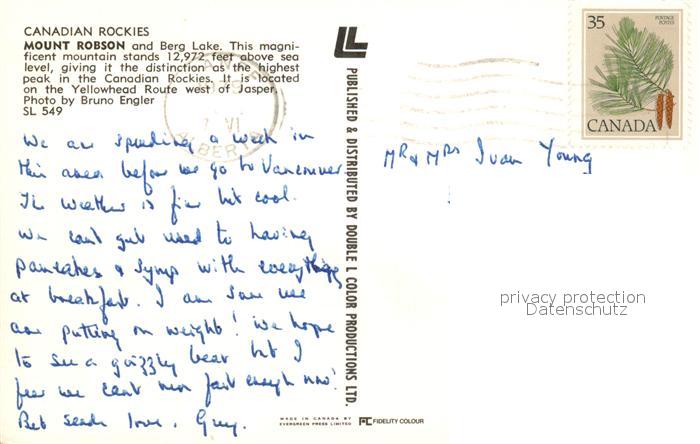 CANADIAN ROCKIES
MOUNT ROBSON and Berg Lake. This magni-
ficent mountain stands 12,972 feet above sea
level, giving it the distinction as the highest
peak in the Canadian Rockies. It is located
on the Yellowhead Route west of Jasper.
Photo by Bruno Engler
SL 549
We are spending a week in
this area before we go to Vancouver
The weather is fine but cool.
We cant get used to having
pancakes & syrup with everything
at breakfast. I am sure we
are putting on weight! We hope
to see a grizzly bear but I
fear we cant run fast enough now!
Bet sends love. Guy.
LL
PUBLISHED & DISTRIBUTED BY DOUBLE L COLOR PRODUCTIONS LTD.
MADE IN CANADA BY
EVERGREEN PRESS LIMITED
FC FIDELITY COLOUR
VI
ALBERTA
35
POSTAGE
POSTES
CANADA
Mr & Mrs Ivan Young
privacy protection
Datenschutz